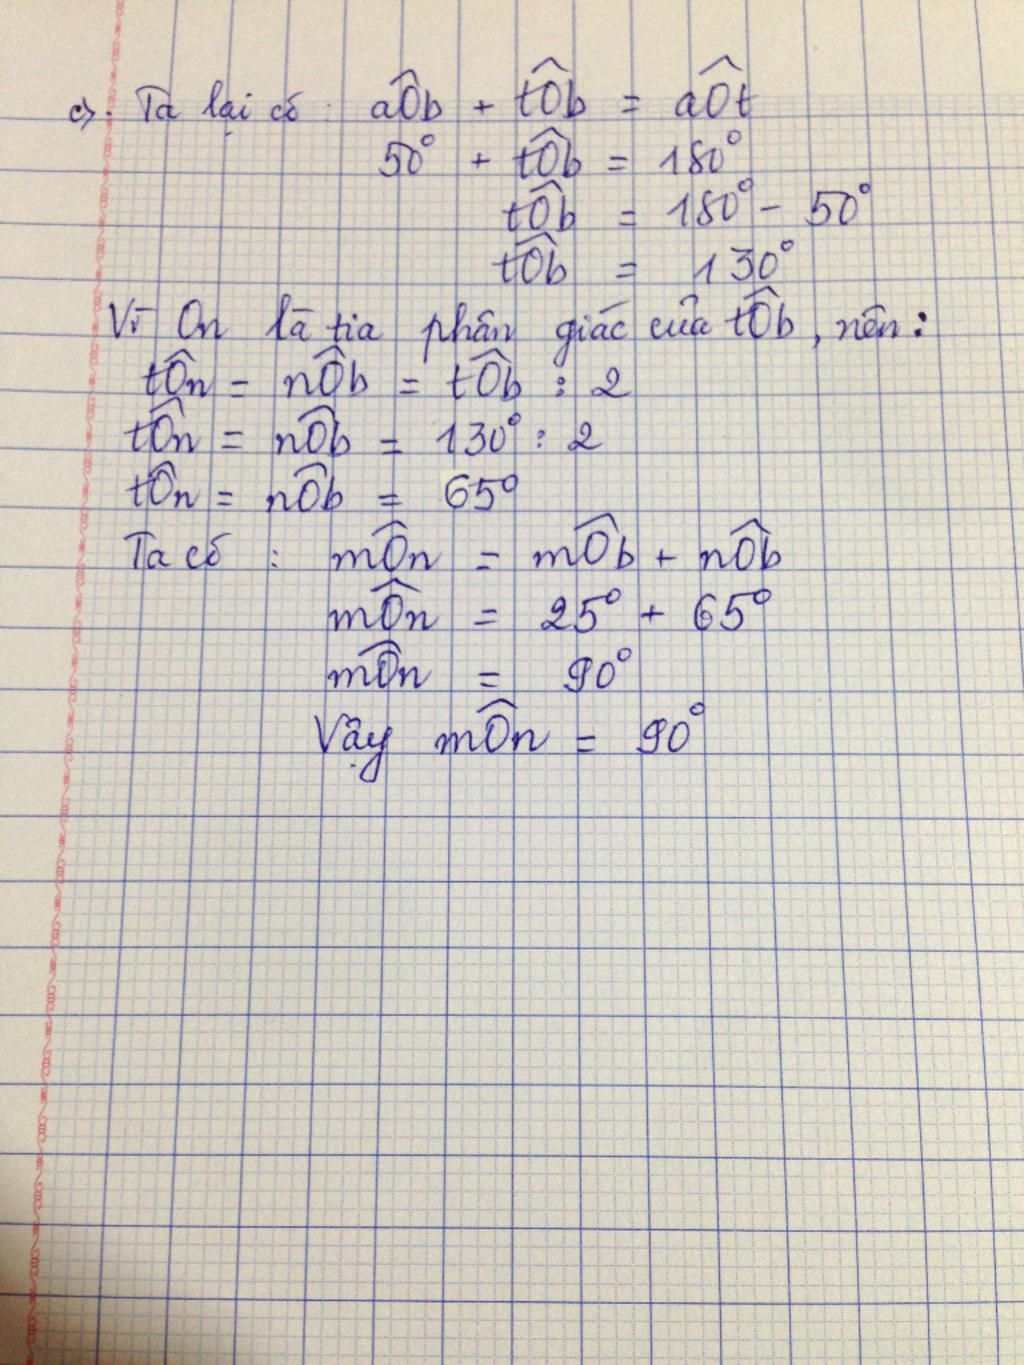 c). Ta lại có : aÔb + tÔb = aÔt
50° + tÔb = 180°
tÔb = 180° - 50°
tÔb = 130°
Vì On là tia phân giác của tÔb, nên :
tÔn = nÔb = tÔb : 2
tÔn = nÔb = 130° : 2
tÔn = nÔb = 65°
Ta có : mÔn = mÔb + nÔb
mÔn = 25° + 65°
mÔn = 90°
Vậy mÔn = 90°